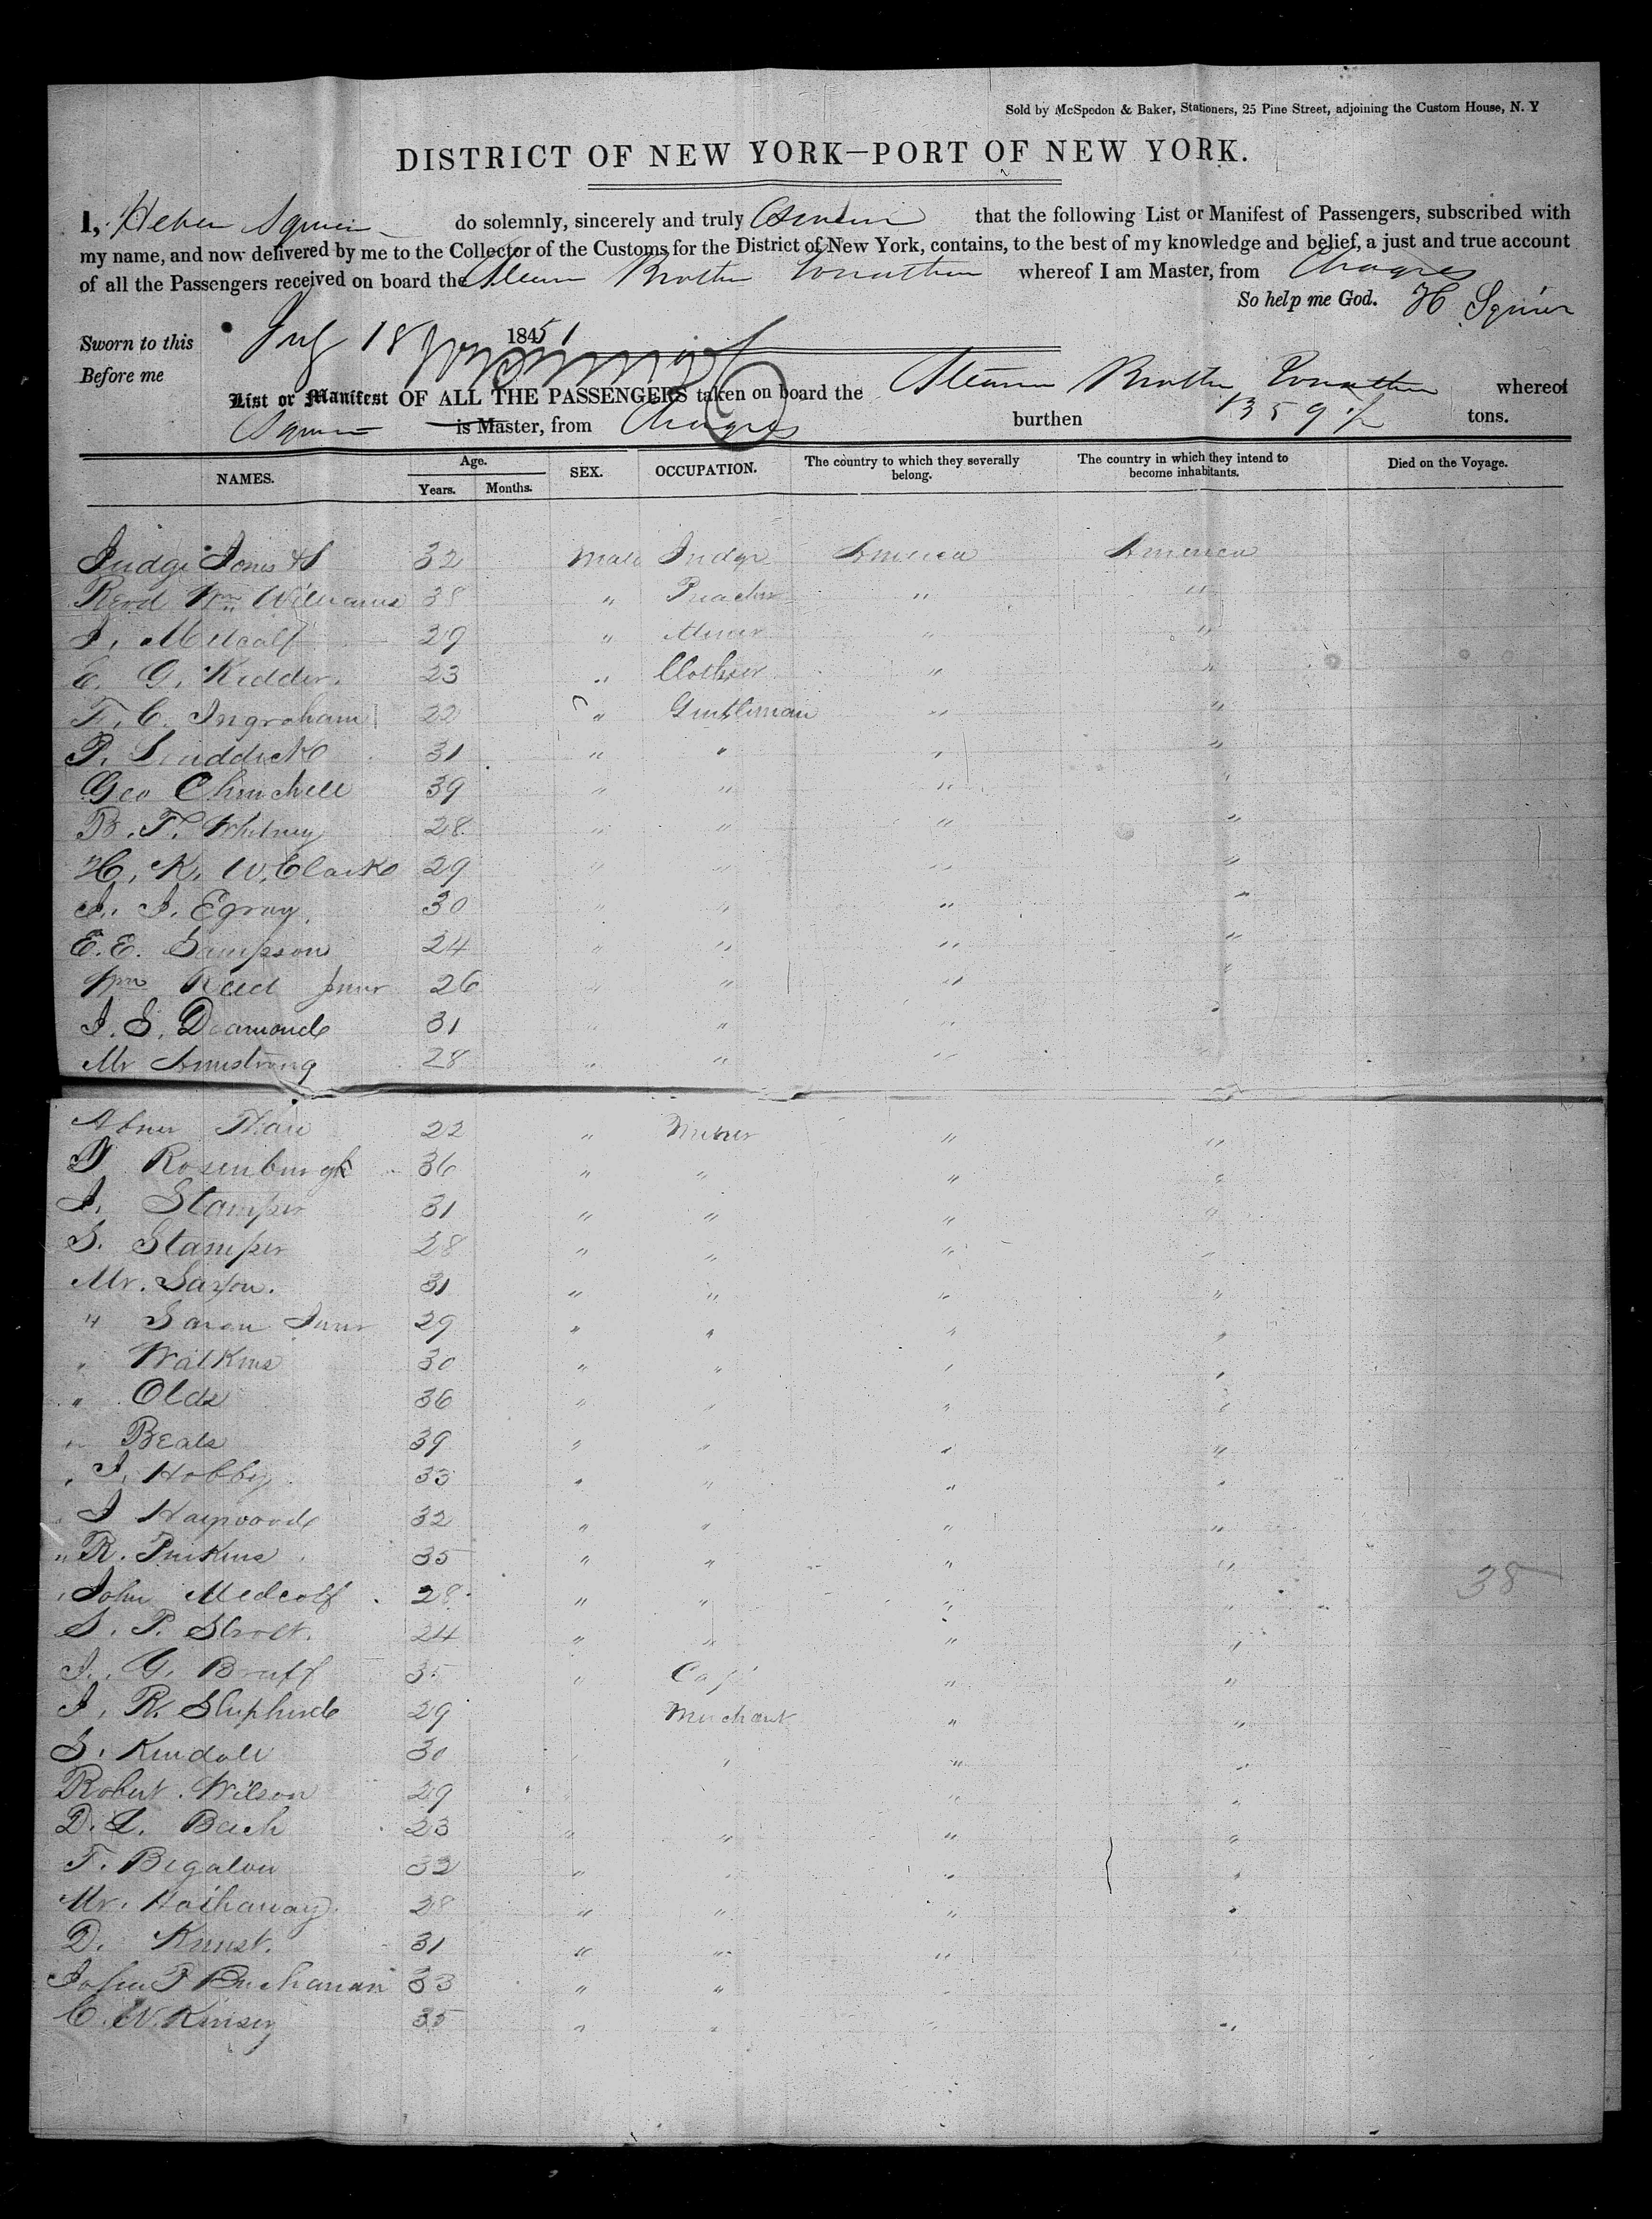 Sold by McSpedon & Baker, Stationers, 25 Pine Street, adjoining the Custom House, N. Y
DISTRICT OF NEW YORK—PORT OF NEW YORK.
I, Heber Squier do solemnly, sincerely and truly that the following List or Manifest of Passengers, subscribed with
my name, and now delivered by me to the Collector of the Customs for the District of New York, contains, to the best of my knowledge and belief, a just and true account
of all the Passengers received on board the Steamer Brother Jonathan whereof I am Master, from Chagres
So help me God. H Squier
Sworn to this July 18 1851
Before me
List or Manifest OF ALL THE PASSENGERS taken on board the Steamer Brother Jonathan whereof
Squier is Master, from Chagres burthen 1359 tons.
NAMES. Age. Years. Months. SEX. OCCUPATION. The country to which they severally belong. The country in which they intend to become inhabitants. Died on the Voyage.
Judge Jones 32 Male Judge America America
Revd Wm Williams 38 " Preacher " "
J. Metcalf 29 " Miner " "
E. G. Kidder. 23 " Clothier " "
F. C. Ingraham 22 " Gentleman " "
P. 31 " " " "
Geo Churchell 39 " " " "
B. F. Whitney 28 " " " "
H. K. W. Clarke 29 " " " "
J. J. 30 " " " "
E. E. Sampson 24 " " " "
Wm Reed Junr 26 " " " "
J. S. Deamond 31 " " " "
Mr Armstrong 28 " " " "
Abner 22 " Miner " "
D Rosenburgh 36 " " " "
J. Stamper 31 " " " "
S. Stamper 28 " " " "
Mr. Saxon. 31 " " " "
" Saxon Junr 29 " " " "
" Watkins 30 " " " "
" Olds 36 " " " "
" Beals 39 " " " "
" J. Hobby 33 " " " "
" J Haywood 32 " " " "
" R. Perkins 35 " " " "
" John Medcalf 28 " " " " 38
S. P. 24 " " " "
J. G. Bruff 35 " Cap " "
J. R. Shepherd 29 Merchant " "
S. Kendall 30 " " " "
Robert Wilson 29 " " "
D. L. Bach 23 " " " "
F. Bigalow 32 " " " "
Mr. Hathaway 28 " " " "
D. 31 " " " "
John P Buchanan 33 " " "
C. W. Kinsey 35 " " " "